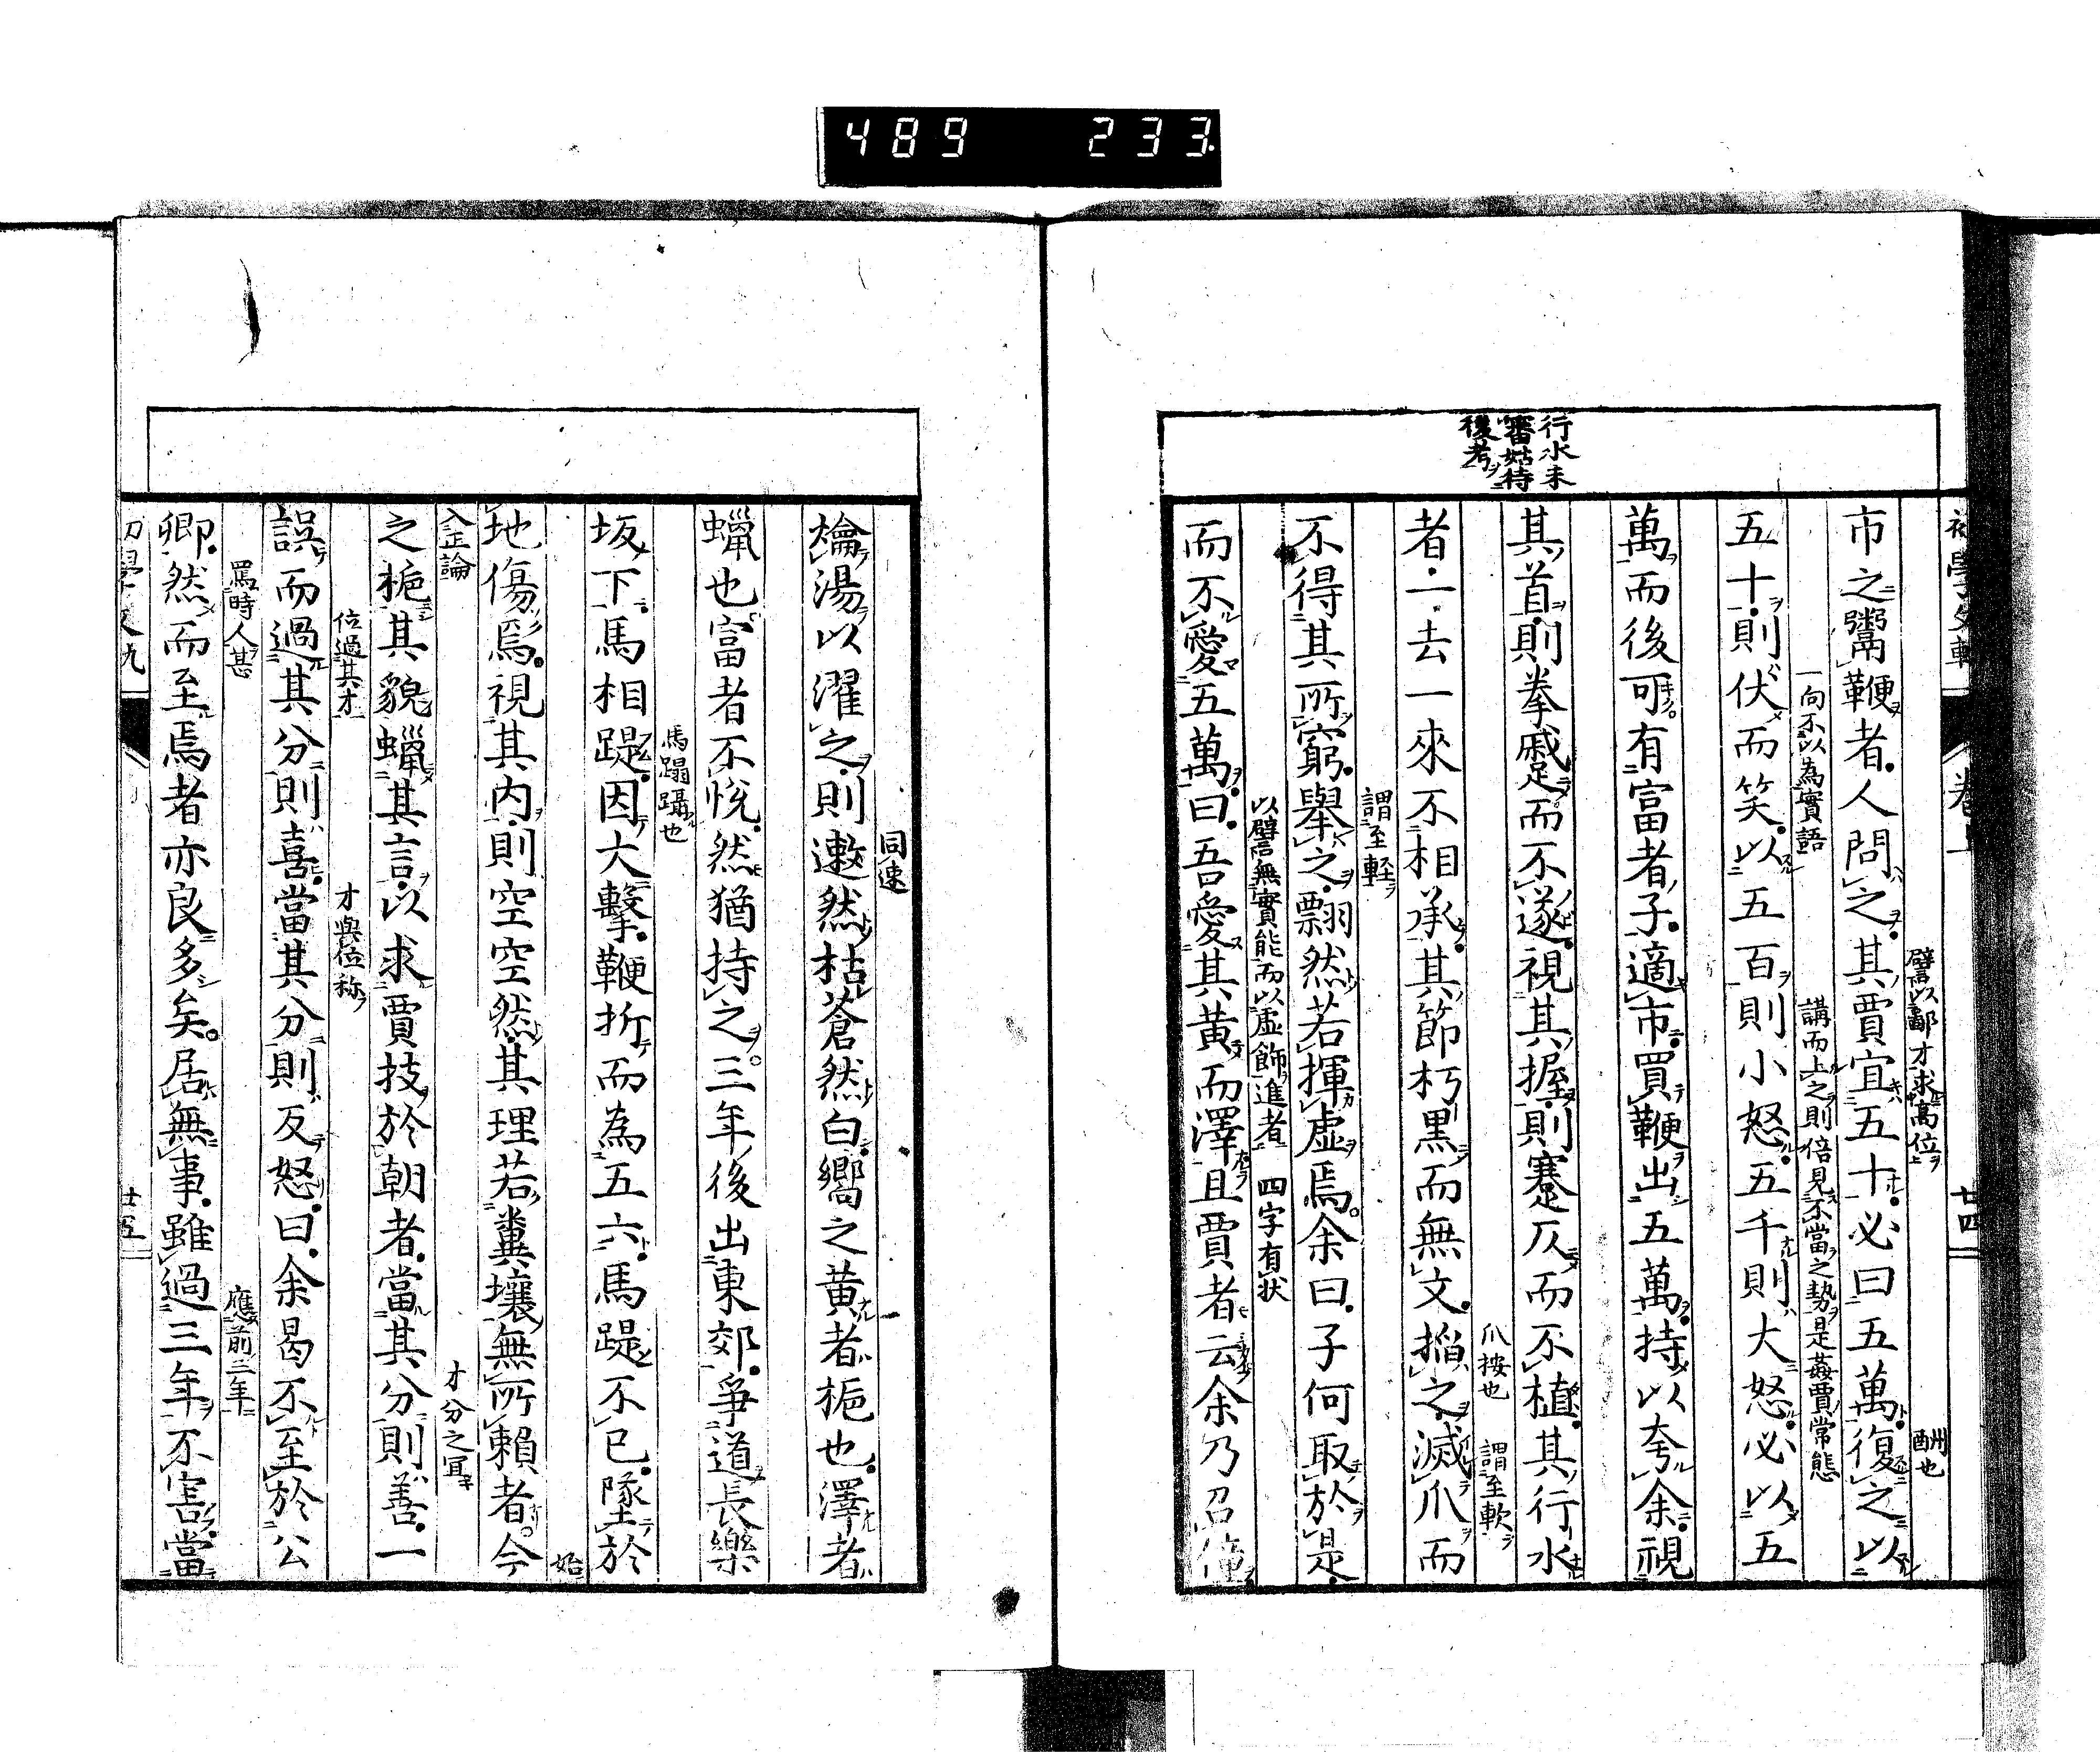 489 233
行水未
審姑待
後考
卷上
廿四
譬以鄙才求高位
酬也
市之鬻鞭者人問之其賈宜五十必曰五萬復之以
一向不以為實語
講而上之則倍見不當之勢是姦賈常態
五十則伏而笑以五百則小怒五千則大怒必以五
萬而後可有富者子適市買鞭出五萬持以夸余視
其首則拳蹙而不遂視其握則蹇仄而不植其行水
爪按也
謂至軟
者一去一來不相承其節朽黒而無文掐之滅爪而
謂至軽
不得其所窮舉之翲然若揮虛焉余曰子何取於是
以譬無實能而以虛飾進者
四字有状
而不愛五萬曰吾愛其黃而澤且賈者云余乃召僮
同速
爚湯以濯之則遬然枯蒼然白嚮之黃者梔也澤者
蠟也富者不悅然猶持之三年後出東郊爭道長樂
馬蹋躡也
坂下馬相踶因大擊鞭折而為五六馬踶不已墜於
地傷焉視其内則空空然其理若糞壤無所賴者今
始
入正論
才分之宜
之梔其貌蠟其言以求賈技於朝者當其分則善一
位過其才
才與位称
誤而過其分則喜當其分則反怒曰余曷不至於公
罵時人甚
應前三年
卿然而至焉者亦良多矣居無事雖過三年不害當
廿五